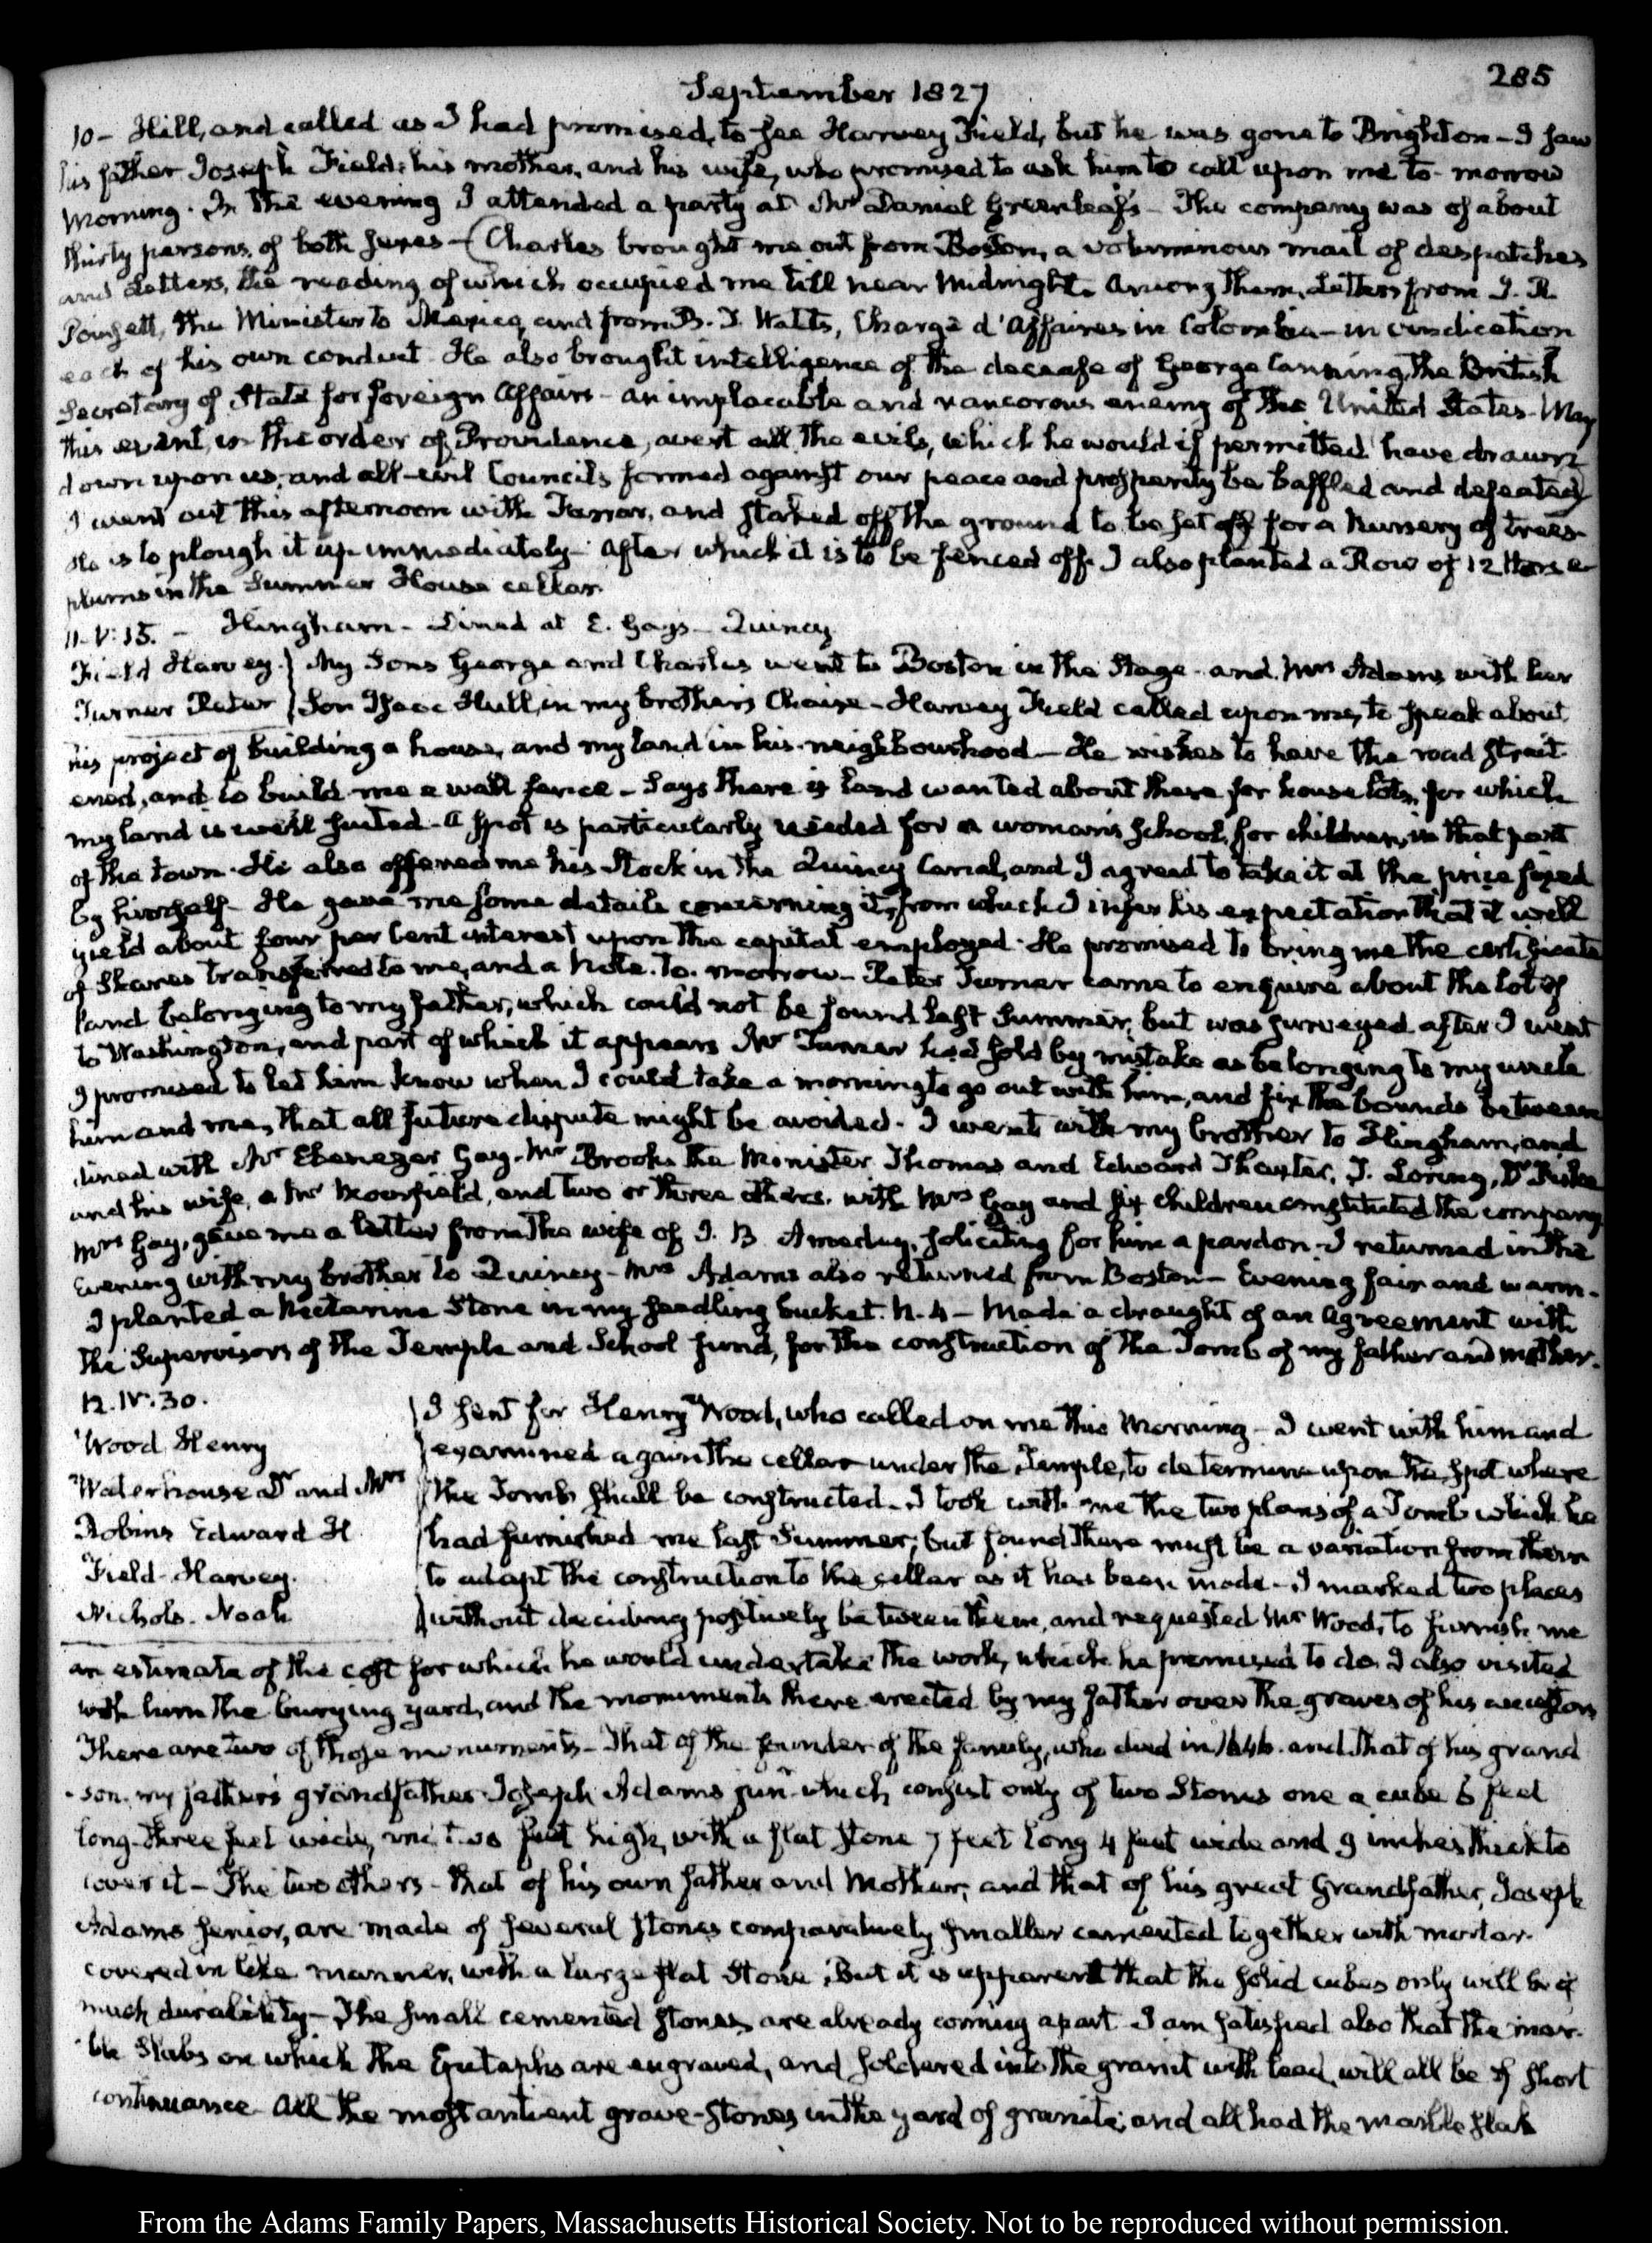 285
September 1827
10 - Hill, and called as I had promised, to see Harvey Field, but he was gone to Brighton - I saw
his father Joseph Field, his mother, and his wife, who promised to ask him to call upon me to-morrow
Morning. In the evening I attended a party at Mr Daniel Greenleaf's - The company was of about
thirty persons, of both sexes - Charles brought me out from Boston, a voluminous mail of despatches
and Letters, the reading of which occupied me till near Midnight. Among them, Letters from J. R.
Poinsett, the Minister to Mexico, and from B. T. Watts, Chargé d'Affaires in Colombia - in vindication
each of his own conduct. He also brought intelligence of the decease of George Canning, the British
Secretary of State for foreign Affairs - an implacable and rancorous enemy of the United States. May
this event, in the order of Providence, avert all the evils, which he would if permitted have drawn
down upon us, and all evil Councils formed against our peace and prosperity be baffled and defeated.
I went out this afternoon with Farrar, and staked off the ground to be set off for a Nursery of trees.
He is to plough it up immediately - After which it is to be fenced off. I also planted a Row of 12 Horse
plums in the Summer House cellar.
11. V: 15. - Hingham - Dined at E. Gay's - Quincy
Field Harvey. } My Sons George and Charles went to Boston in the Stage - and Mrs Adams with her
Turner Peter } Son Isaac Hull, in my brother's Chaise - Harvey Field called upon me, to speak about
his project of building a house, and my land in his neighbourhood - He wishes to have the road strait
ened, and to build me a wall fence - Says there is land wanted about there for house lots, for which
my land is well suited - A spot is particularly needed for a woman's School, for children, in that part
of the town. He also offered me his Stock in the Quincy Canal, and I agreed to take it at the price fixed
by himself - He gave me some details concerning it, from which I infer his expectation that it will
yield about four per Cent interest upon the capital employed. He promised to bring me the certificate
of Shares transferred to me, and a Note. to-morrow - Peter Turner came to enquire about the lot of
land belonging to my father, which could not be found last Summer, but was surveyed after I went
to Washington, and part of which it appears Mr Turner had sold by mistake as belonging to my uncle
I promised to let him know when I could take a morning to go out with him, and fix the bounds between
him and me, that all future dispute might be avoided - I went with my brother to Hingham, and
dined with Mr Ebenezer Gay - Mr Brooks the Minister, Thomas and Edward Thaxter, J. Loring, Dr Fiske
and his wife, a Mr and two or three others, with Mrs Gay and six children constituted the company.
Mrs Gay, gave me a letter from the wife of J. B. soliciting for him a pardon - I returned in the
Evening with my brother to Quincy - Mrs Adams also returned from Boston - Evening fair and warm.
I planted a Nectarine Stone in my seedling bucket. N. 4 - Made a draught of an Agreement with
the Supervisors of the Temple and School fund, for the construction of the Tomb of my father and mother.
12. IV: 30.
Wood Henry
Waterhouse Dr and Mrs
Robins Edward H
Field Harvey.
Nichols. Noah
I sent for Henry Wood, who called on me this Morning - I went with him and
examined again the cellar under the Temple, to determine upon the spot where
the Tomb shall be constructed - I took with me the two plans of a Tomb which he
had furnished me last Summer; but found there must be a variation from them
to adapt the construction to the cellar as it has been made - I marked two places
without deciding positively between them, and requested Mr Wood, to furnish me
an estimate of the cost for which he would undertake the work, which he promised to do. I also visited
with him the burying yard, and the monuments there erected by my father over the graves of his ancestors
There are two of those monuments - That of the founder of the family, who died in 1646. and that of his grand
-son. my father's grandfather Joseph Adams junr which consist only of two Stones one a cube 6 feet
long. three feet wide, and two feet high, with a flat stone 7 feet long 4 feet wide and 9 inches thick to
cover it - The two others - that of his own father and Mother, and that of his great Grandfather, Joseph
Adams Senior, are made of several stones comparatively smaller cemented together with mortar.
covered in like manner, with a large flat Stone, But it is apparent that the solid cubes only will be of
much durability - The small cemented stones, are already coming apart. I am satisfied also that the mar-
ble Slabs on which the Epitaphs are engraved, and soldered into the granit with lead, will all be of short
continuance. All the most antient grave-stones in the yard of granite; and all had the marble slab